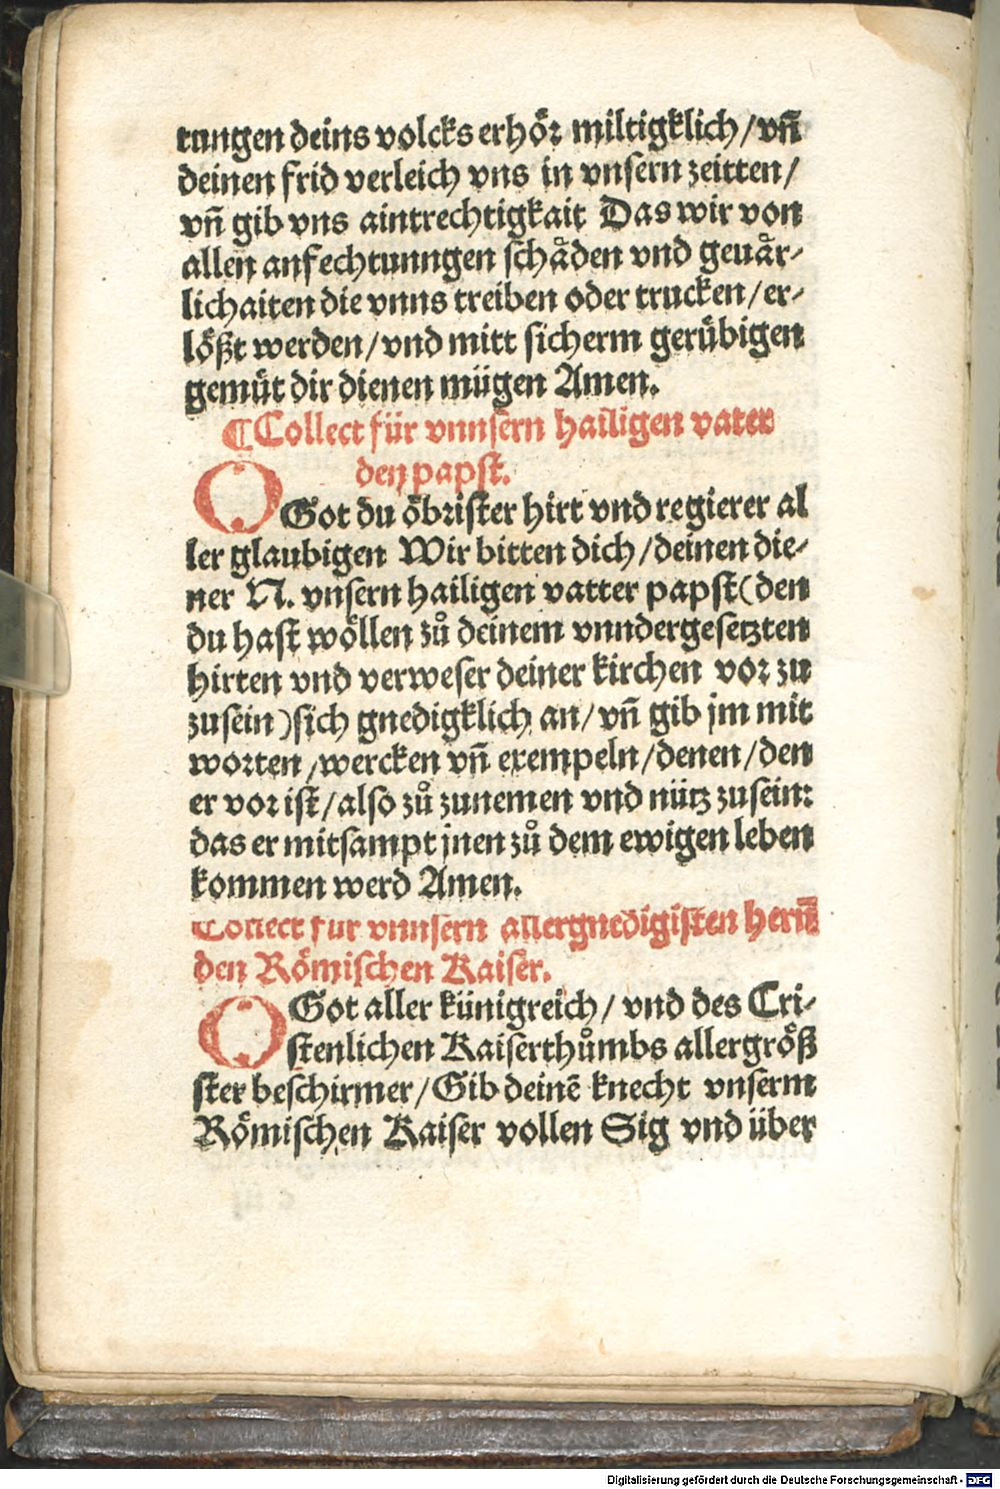 tungen deins volcks erhöꝛ miltigklich/vn̄
deinen frid verleich vns in vnsern zeitten/
vn̄ gib vns aintrechtigkait Das wir von
allen anfechtunngen schåden vnd geuår⸗
lichaiten die vnns treiben oder trucken/er⸗
lößt werden/vnd mitt sicherm gerübigen
gemüt dir dienen mügen Amen.
¶Collect für vnnsern hailigen vater
den papst.
O Got du öbꝛister hirt vnd regierer al
ler glaubigen Wir bitten dich/deinen die⸗
ner N. vnsern hailigen vatter papst(den
du hast wöllen zů deinem vnndergesetzten
hirten vnd verweser deiner kirchen voꝛ zu
zusein)sich gnedigklich an/vn̄ gib jm mit
woꝛten/wercken vn̄ exempeln/denen/den
er voꝛ ist/also zů zunemen vnd nütz zusein:
das er mitsampt jnen zů dem ewigen leben
kommen werd Amen.
Collect fur vnnsern allergnedigisten hern̄
den Römischen Kaiser.
O Got aller künigreich/ vnd des Cri⸗
stenlichen Kaiserthůmbs allergröß
ster beschirmer/Gib deinē knecht vnserm
Römischen Kaiser vollen Sig vnd über
Digitalisierung gefördert durch die Deutsche Forschungsgemeinschaft - DFG